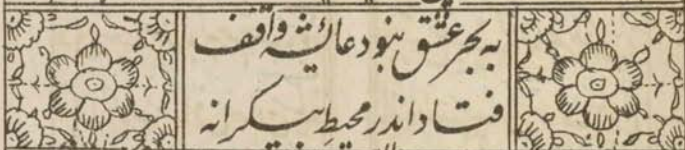 به بحر عشق نبود عائشه واقف
فتاد اندر محیط بیکرانه